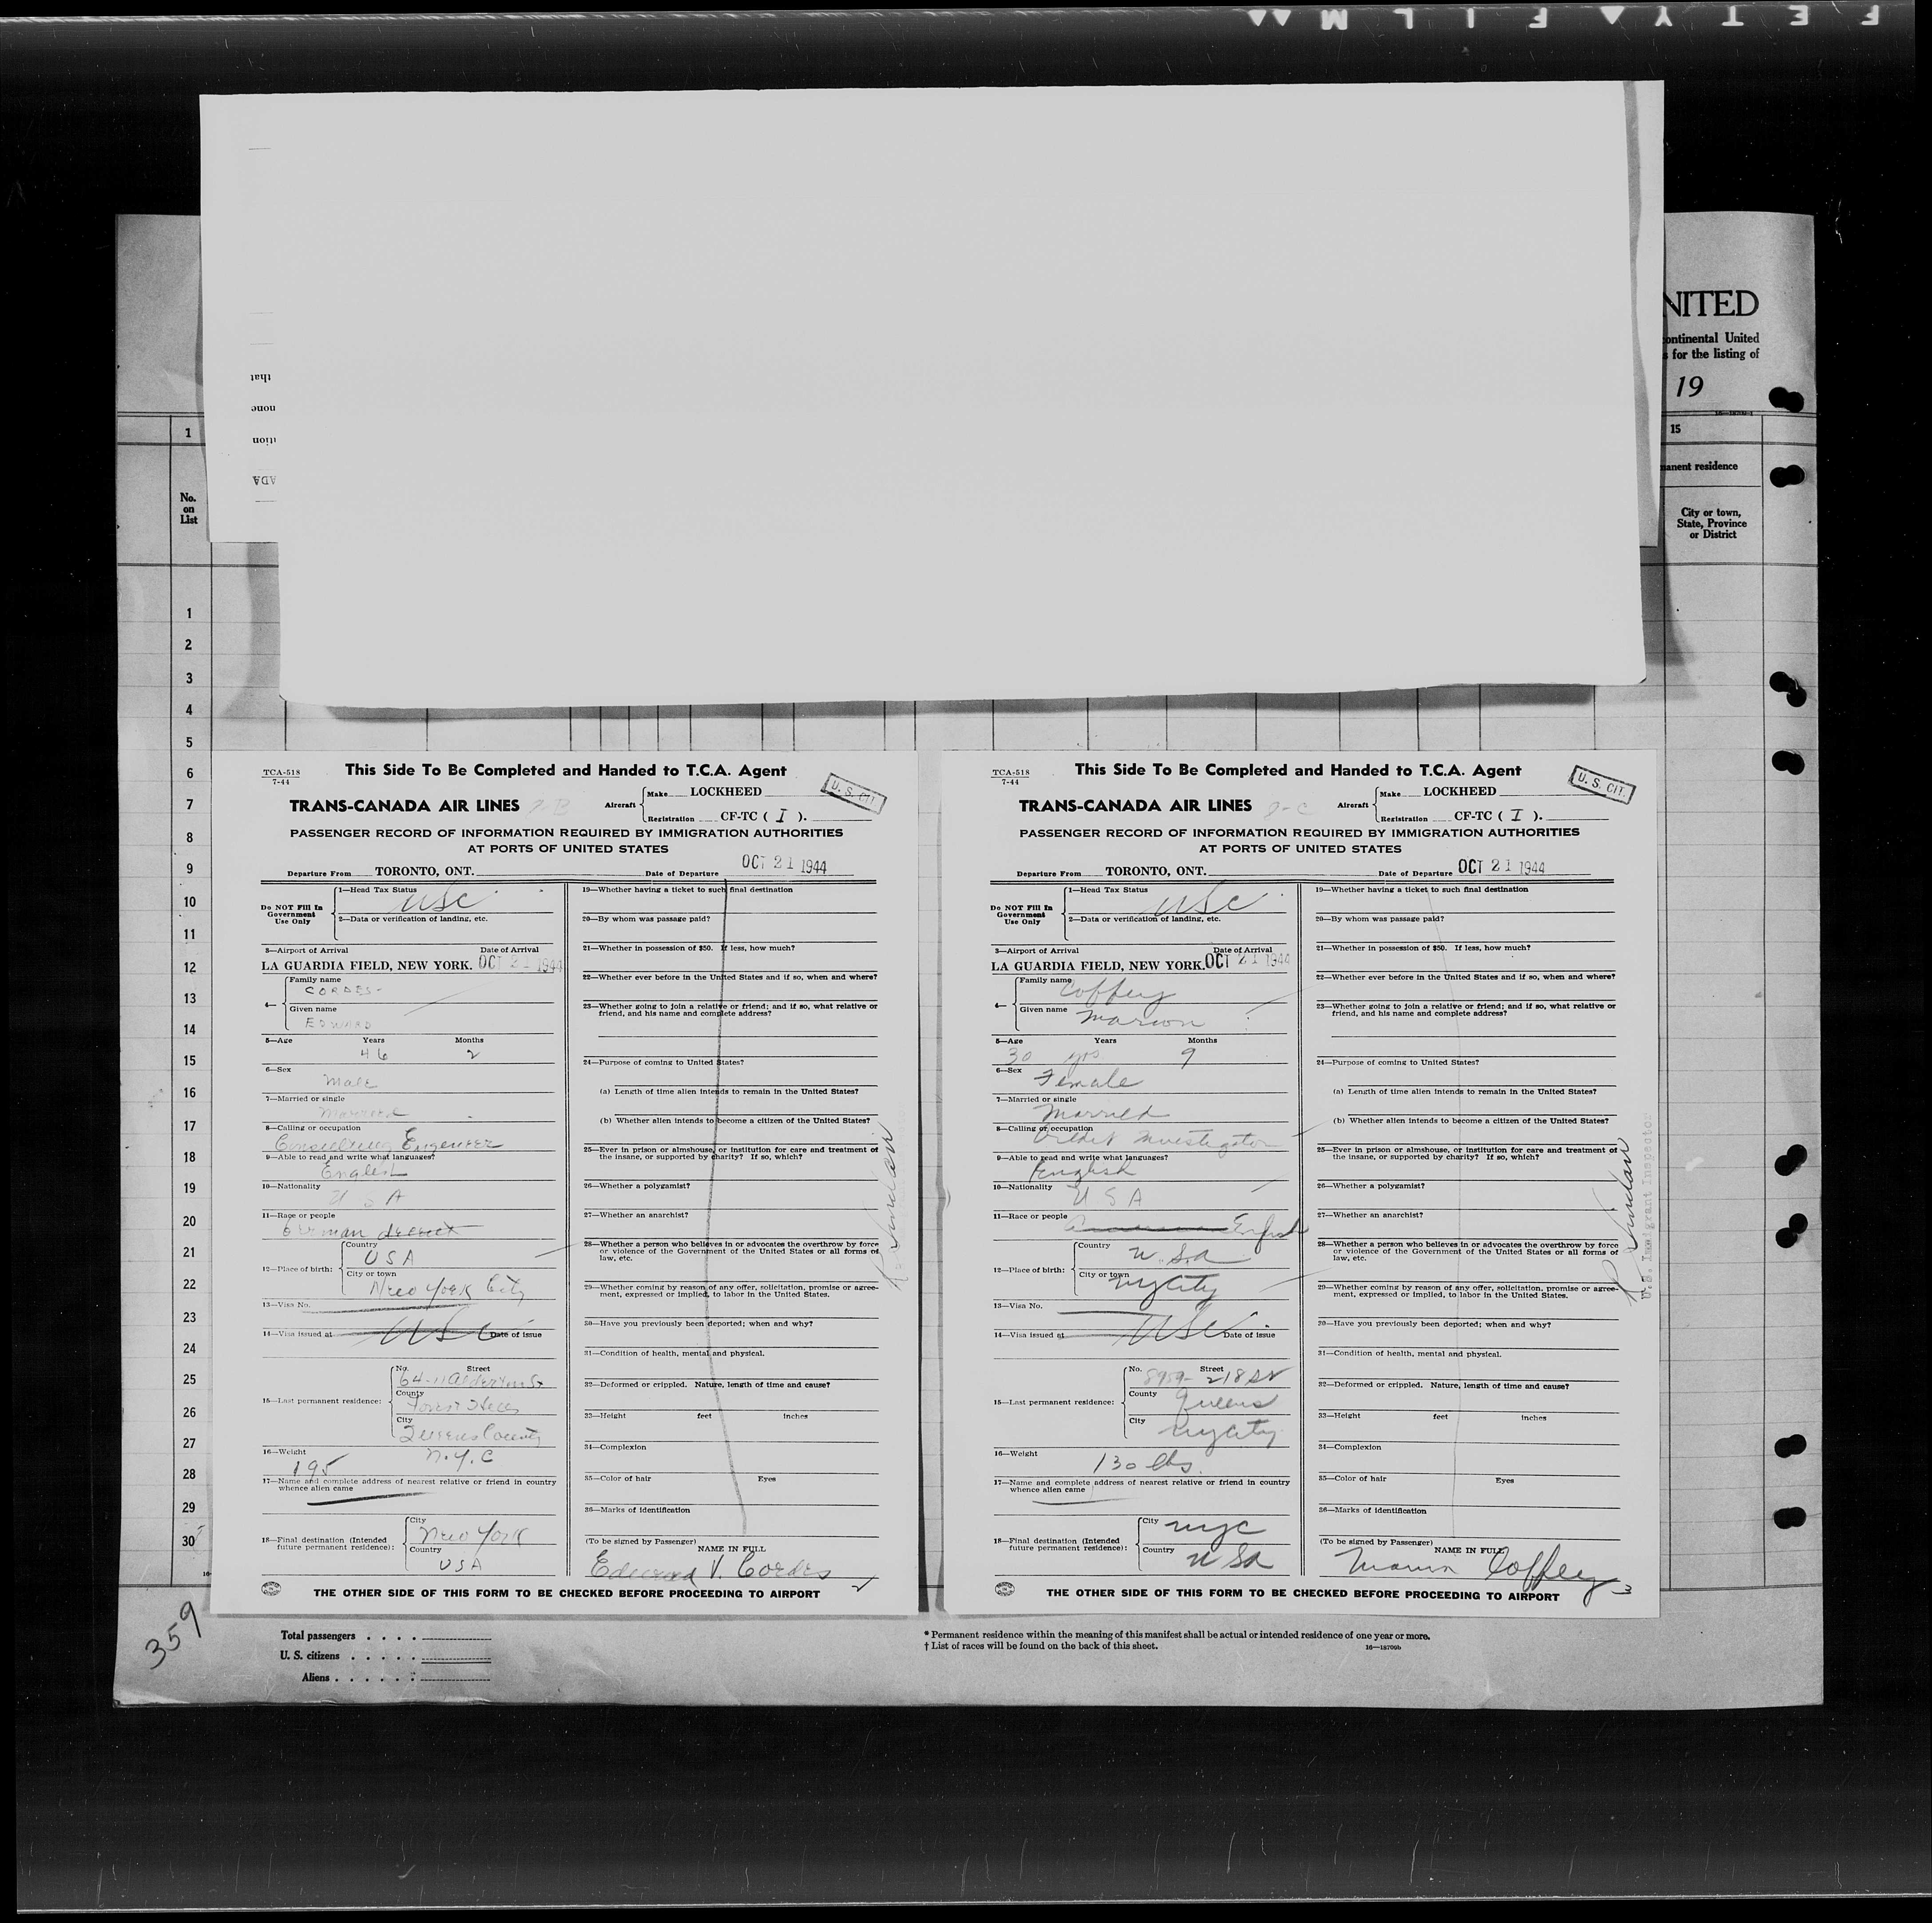 SAFETY FILM
UNITED
continental United
s for the listing of
19
1
15
manent residence
No.
on
List
City or town,
State, Province
or District
that
none
ution
ADA
1
2
3
4
5
6
7
8
9
10
11
12
13
14
15
16
17
18
19
20
21
22
23
24
25
26
27
28
29
30
TCA-518
7-44
This Side To Be Completed and Handed to T.C.A. Agent
U. S. CIT.
TRANS-CANADA AIR LINES
Aircraft
Make LOCKHEED
Registration CF-TC ( I ).
PASSENGER RECORD OF INFORMATION REQUIRED BY IMMIGRATION AUTHORITIES
AT PORTS OF UNITED STATES
Departure From TORONTO, ONT. Date of Departure OCT 21 1944
Do NOT Fill In
Government
Use Only
1—Head Tax Status
USC
2—Data or verification of landing, etc.
3—Airport of Arrival Date of Arrival
LA GUARDIA FIELD, NEW YORK. OCT 21 1944
4—
Family name
CORDES
Given name
EDWARD
5—Age Years Months
46 2
6—Sex
Male
7—Married or single
Married
8—Calling or occupation
Consulting Engineer
9—Able to read and write what languages?
English
10—Nationality
U S A
11—Race or people
German descent
12—Place of birth:
Country
USA
City or town
New York City
13—Visa No.
14—Visa issued at USC Date of issue
15—Last permanent residence:
No. Street
64-11 Alderton St
County
Forest Hills
City
Queens County
N.Y.C
16—Weight
195
17—Name and complete address of nearest relative or friend in country
whence alien came
18—Final destination (Intended
future permanent residence):
City
New York
Country
USA
19—Whether having a ticket to such final destination
20—By whom was passage paid?
21—Whether in possession of $50. If less, how much?
22—Whether ever before in the United States and if so, when and where?
23—Whether going to join a relative or friend; and if so, what relative or
friend, and his name and complete address?
24—Purpose of coming to United States?
(a) Length of time alien intends to remain in the United States?
(b) Whether alien intends to become a citizen of the United States?
25—Ever in prison or almshouse, or institution for care and treatment of
the insane, or supported by charity? If so, which?
26—Whether a polygamist?
27—Whether an anarchist?
28—Whether a person who believes in or advocates the overthrow by force
or violence of the Government of the United States or all forms of
law, etc.
29—Whether coming by reason of any offer, solicitation, promise or agree-
ment, expressed or implied, to labor in the United States.
30—Have you previously been deported; when and why?
31—Condition of health, mental and physical.
32—Deformed or crippled. Nature, length of time and cause?
33—Height feet inches
34—Complexion
35—Color of hair Eyes
36—Marks of identification
(To be signed by Passenger)
NAME IN FULL
Edward V. Cordes
2
THE OTHER SIDE OF THIS FORM TO BE CHECKED BEFORE PROCEEDING TO AIRPORT
TCA-518
7-44
This Side To Be Completed and Handed to T.C.A. Agent
U. S. CIT.
TRANS-CANADA AIR LINES 8-C
Aircraft
Make LOCKHEED
Registration CF-TC ( I ).
PASSENGER RECORD OF INFORMATION REQUIRED BY IMMIGRATION AUTHORITIES
AT PORTS OF UNITED STATES
Departure From TORONTO, ONT. Date of Departure OCT 21 1944
Do NOT Fill In
Government
Use Only
1—Head Tax Status
USC
2—Data or verification of landing, etc.
3—Airport of Arrival Date of Arrival
LA GUARDIA FIELD, NEW YORK. OCT 21 1944
4—
Family name
Coffey
Given name
Marion
5—Age Years Months
30 yrs 9
6—Sex
Female
7—Married or single
Married
8—Calling or occupation
Credit Investigator
9—Able to read and write what languages?
English
10—Nationality
U S A
11—Race or people English
12—Place of birth:
Country
U.S.A
City or town
NYCity
13—Visa No.
14—Visa issued at USC Date of issue
15—Last permanent residence:
No. Street
8959- 218 St
County
Queens
City
NYCity
16—Weight
130 lbs.
17—Name and complete address of nearest relative or friend in country
whence alien came
18—Final destination (Intended
future permanent residence):
City
NYC
Country
USA
19—Whether having a ticket to such final destination
20—By whom was passage paid?
21—Whether in possession of $50. If less, how much?
22—Whether ever before in the United States and if so, when and where?
23—Whether going to join a relative or friend; and if so, what relative or
friend, and his name and complete address?
24—Purpose of coming to United States?
(a) Length of time alien intends to remain in the United States?
(b) Whether alien intends to become a citizen of the United States?
25—Ever in prison or almshouse, or institution for care and treatment of
the insane, or supported by charity? If so, which?
26—Whether a polygamist?
27—Whether an anarchist?
28—Whether a person who believes in or advocates the overthrow by force
or violence of the Government of the United States or all forms of
law, etc.
29—Whether coming by reason of any offer, solicitation, promise or agree-
ment, expressed or implied, to labor in the United States.
30—Have you previously been deported; when and why?
31—Condition of health, mental and physical.
32—Deformed or crippled. Nature, length of time and cause?
33—Height feet inches
34—Complexion
35—Color of hair Eyes
36—Marks of identification
(To be signed by Passenger)
NAME IN FULL
Marion Coffey
3
U.S. Immigrant Inspector
THE OTHER SIDE OF THIS FORM TO BE CHECKED BEFORE PROCEEDING TO AIRPORT
359
Total passengers
U. S. citizens
Aliens
* Permanent residence within the meaning of this manifest shall be actual or intended residence of one year or more.
† List of races will be found on the back of this sheet.
16—18709b